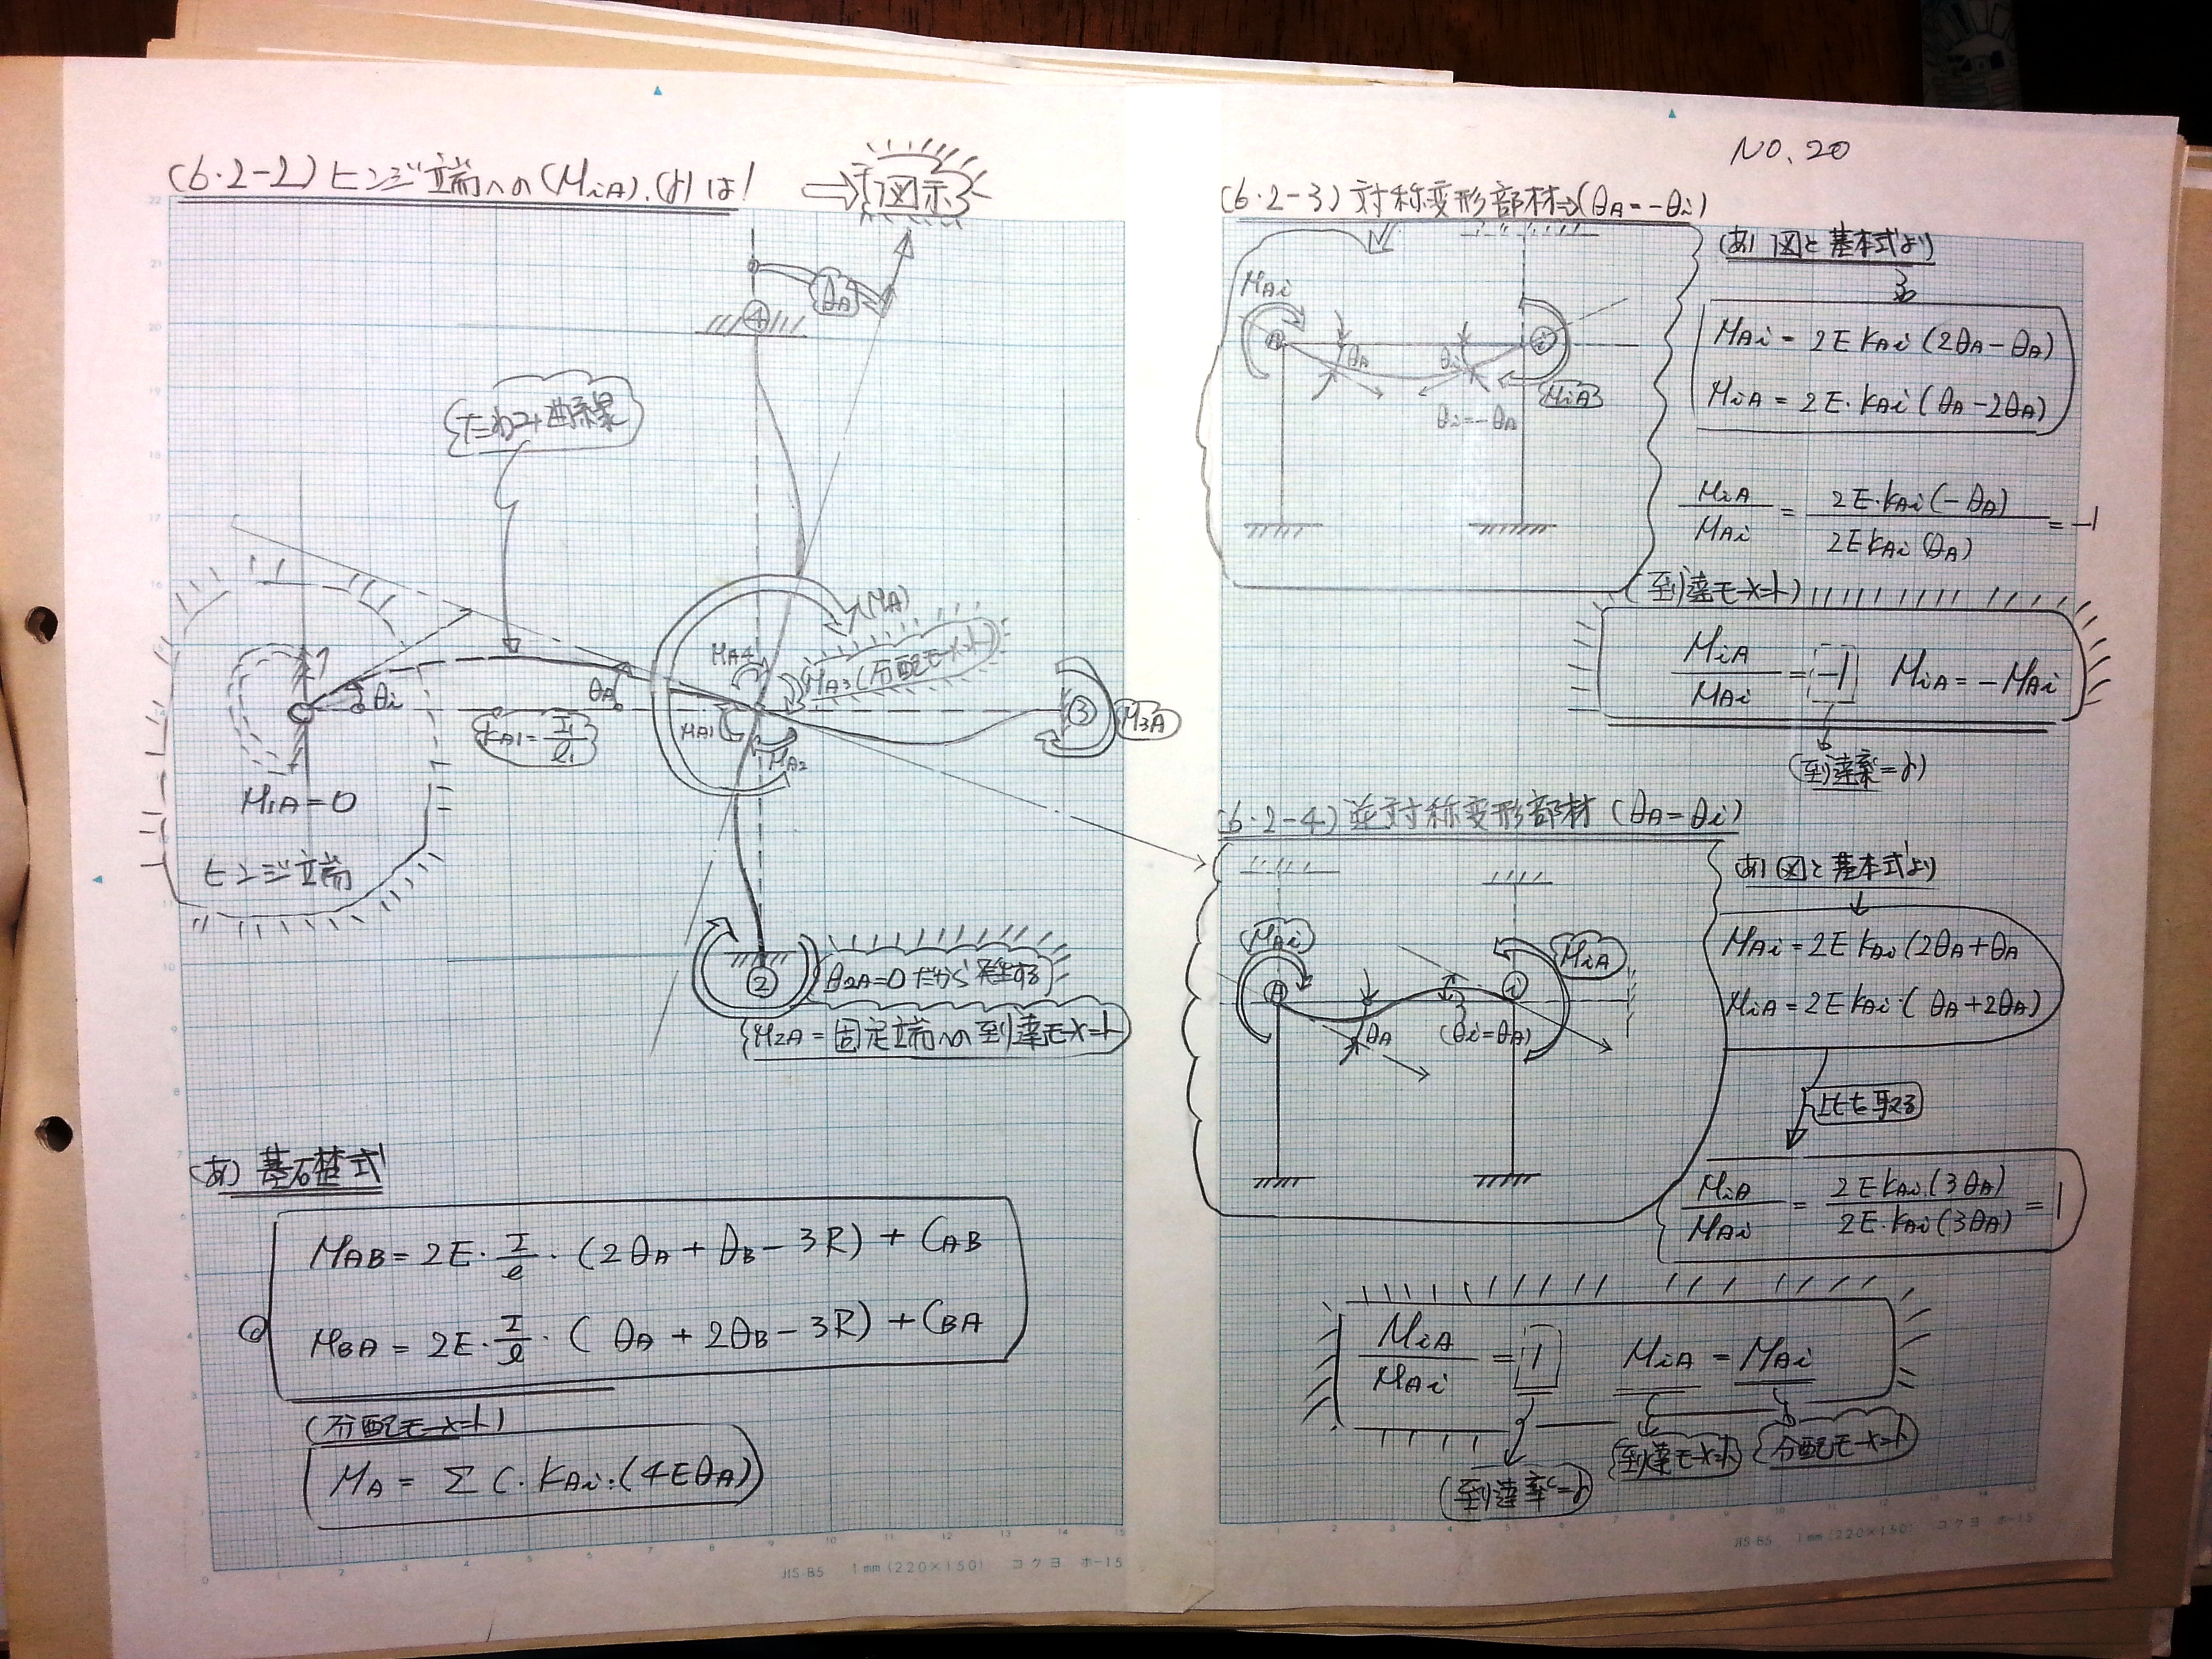 (6・2-2) ヒンジ端への(MiA).(γ)は!
図示
θA
④
たわみ曲線
(MA)
MA4
MA3 (分配モーメント)
θi
θA
KA1 = I1/l1
MA1
MA2
③
M3A
M1A = 0
ヒンジ端
②
θ2A = 0 だから 発生する
M2A = 固定端への到達モーメント
(あ) 基礎式
MAB = 2E・I/l・(2θA + θB - 3R) + CAB
MBA = 2E・I/l・( θA + 2θB - 3R) + CBA
(分配モーメント)
MA = Σ C・KAi・(4EθA)
JIS-B5 1mm (220×150) コクヨ ホ-15
NO. 20
(6・2-3) 対称変形部材⇒(θA = -θi)
MAi
A
θA
θi
i
MiA
θi = -θA
(あ) 図と基本式より
MAi = 2E KAi (2θA - θA)
MiA = 2E・KAi (θA - 2θA)
MiA/MAi = 2E・KAi (-θA) / 2E KAi (θA) = -1
(到達モーメント)
MiA/MAi = -1 MiA = -MAi
(到達率=γ)
(6・2-4) 逆対称変形部材 (θA = θi)
MAi
A
θA
(θi = θA)
i
MiA
(あ) 図と基本式より
MAi = 2E KAi (2θA + θA
MiA = 2E KAi・( θA + 2θA)
比を取る
MiA/MAi = 2E KAi (3θA) / 2E・KAi (3θA) = 1
MiA/MAi = 1 MiA = MAi
(到達率=γ)
到達モーメント
分配モーメント
JIS-B5 1mm (220×150) コクヨ ホ-15